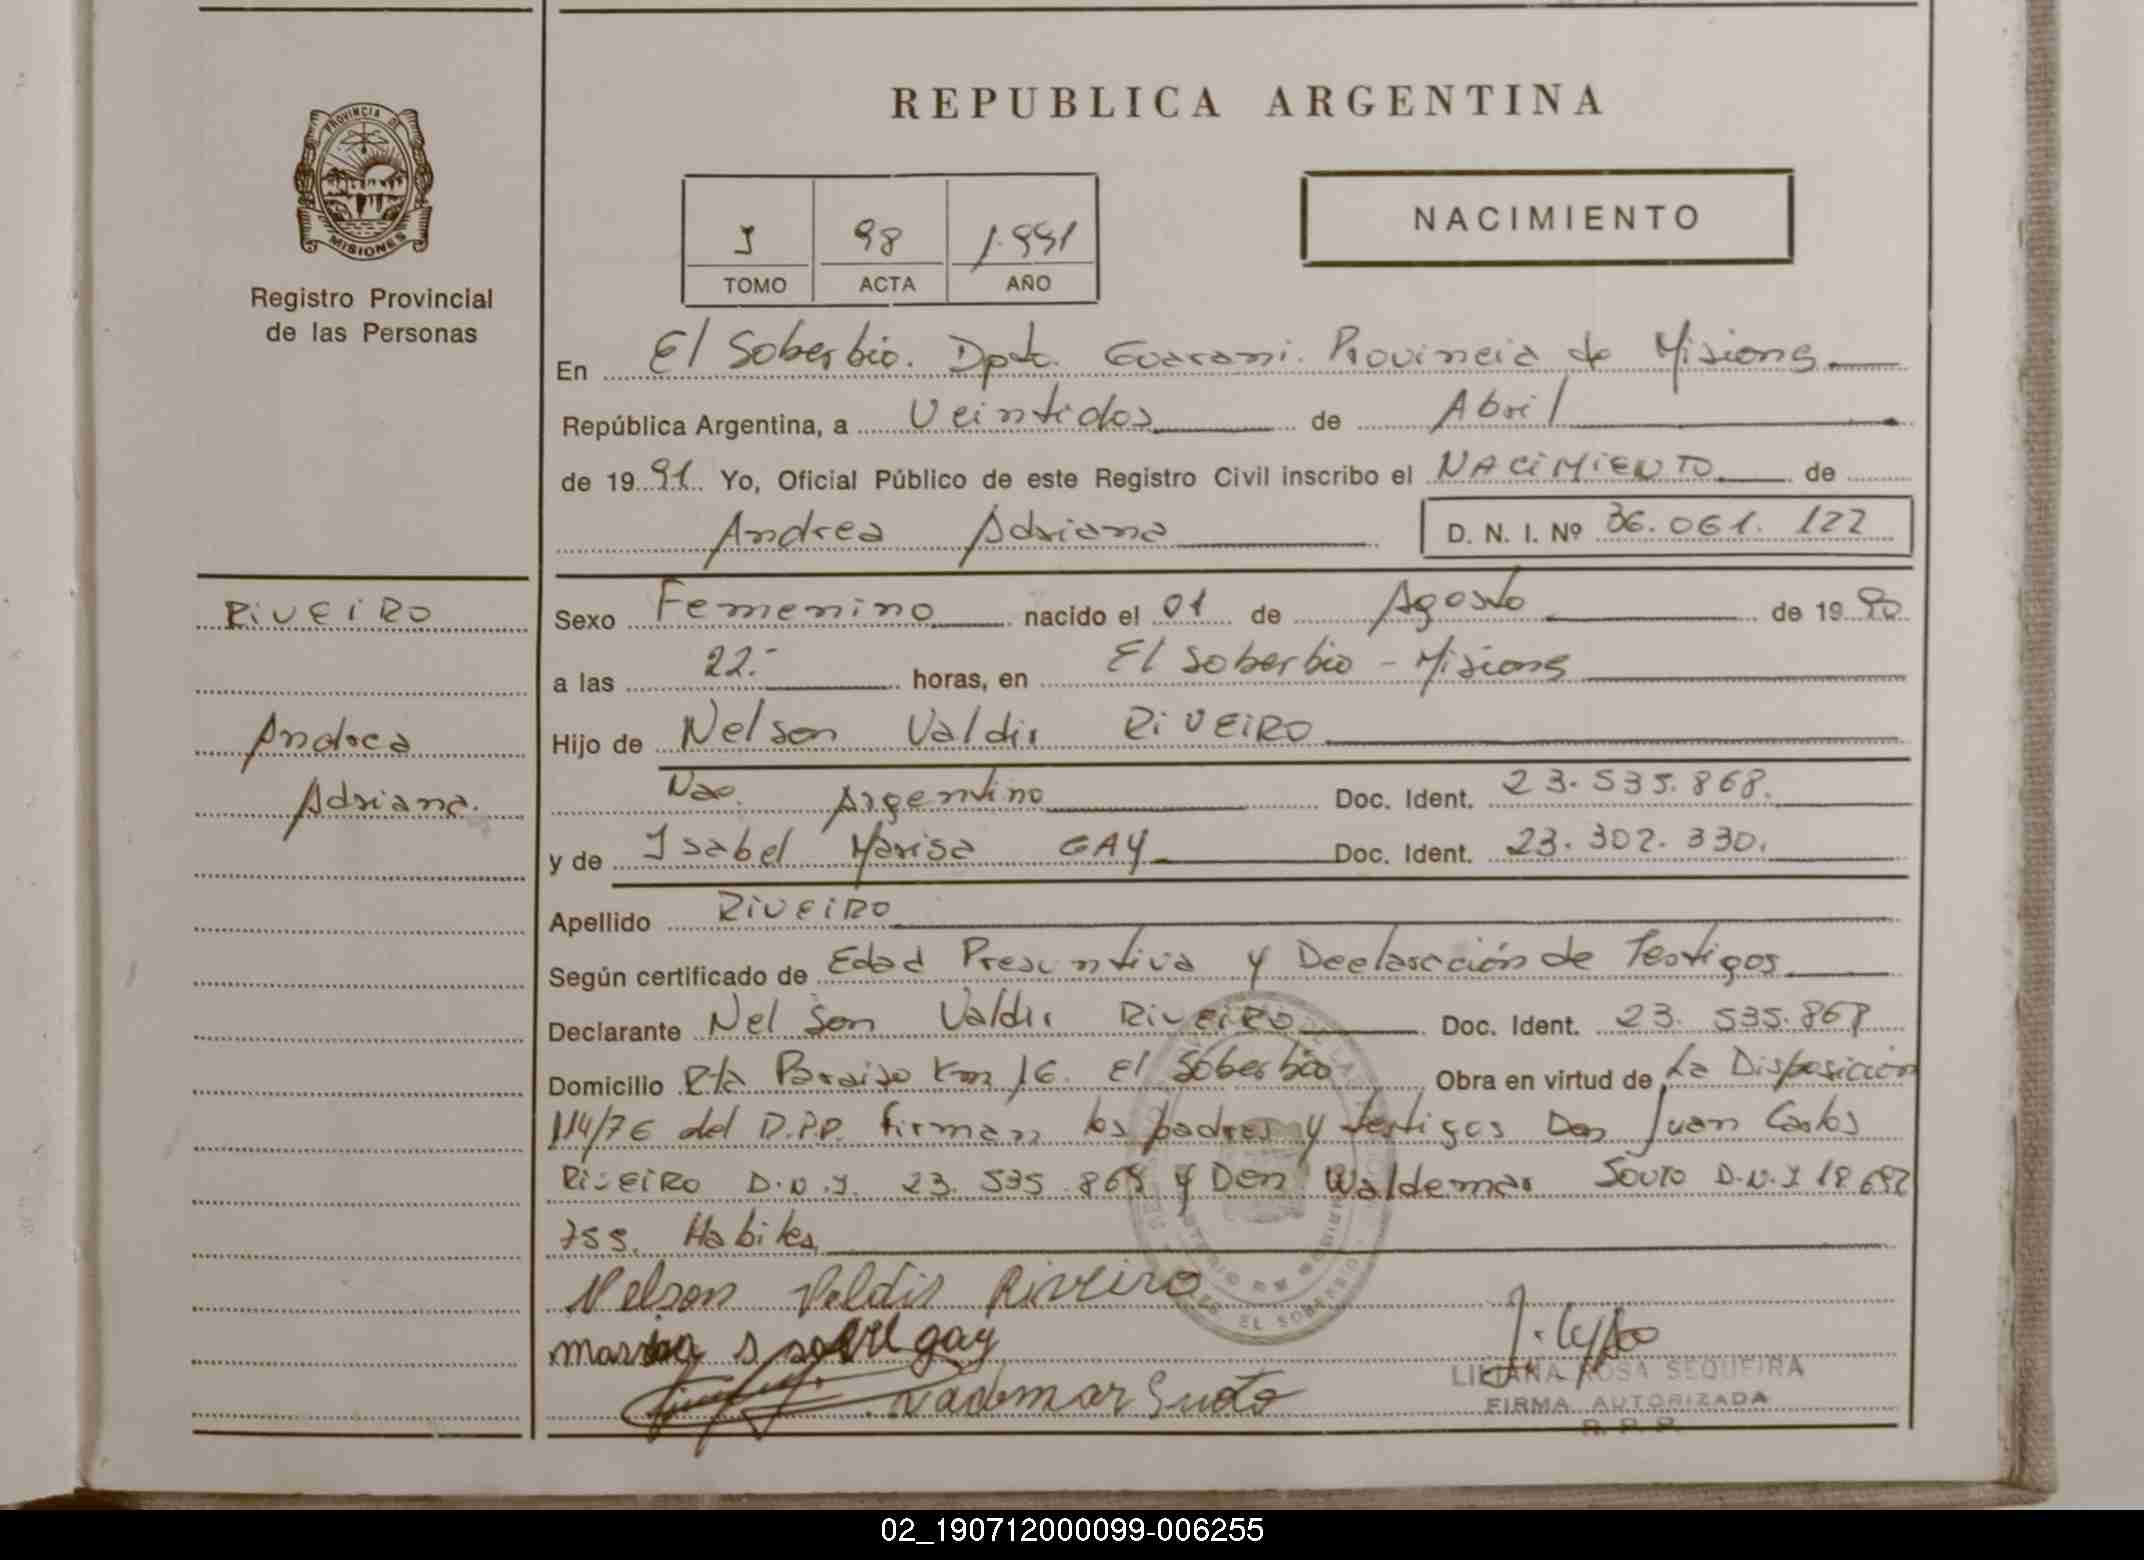 PROVINCIA DE
MISIONES
Registro Provincial
de las Personas
REPUBLICA ARGENTINA
NACIMIENTO
I 98 1.991
TOMO ACTA AÑO
En El Soberbio. Dpto. Guarani. Provincia de Misiones
República Argentina, a Veintidos de Abril
de 19 91 Yo, Oficial Público de este Registro Civil inscribo el NACIMIENTO de
Andrea Adriana D. N. I. Nº 36.061.122
RIVEIRO
Andrea
Adriana.
Sexo Femenino nacido el 01 de Agosto de 19 90
a las 22.- horas, en El Soberbio - Misiones
Hijo de Nelson Valdir RIVEIRO
Nac. Argentino Doc. Ident. 23.535.868.
y de Isabel Marisa GAY Doc. Ident. 23.302.330.
Apellido RIVEIRO
Según certificado de Edad Presuntiva y Declaración de Testigos
Declarante Nelson Valdir RIVEIRO Doc. Ident. 23.535.868
Domicilio Rta Paraiso Km 16. El Soberbio Obra en virtud de La Disposicion
114/76 del D.P.P. firman los padres y testigos Don Juan Carlos
RIVEIRO D.N.I. 23.535.869 y Don Waldemar SOUTO D.N.I 18.692
755. Habiles
Nelson Valdir Riveiro
marisa gay
LILIANA ROSA SEQUEIRA
FIRMA AUTORIZADA
R. P. P.
02_190712000099-006255